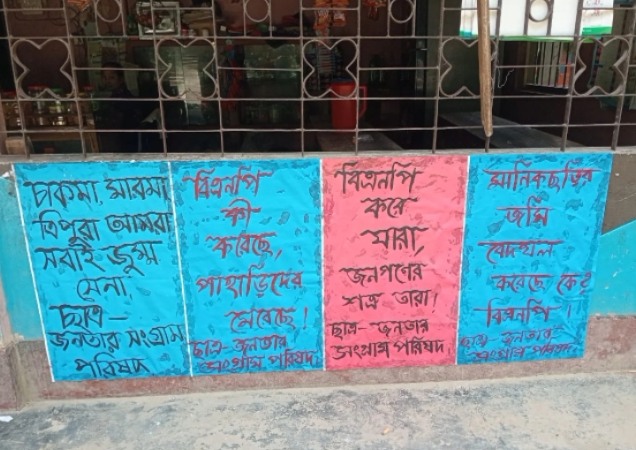 চাকমা, মারমা,
ত্রিপুরা আমরা
সবাই জুম্ম
সেনা,
ছাত্র-
জনতার সংগ্রাম
পরিষদ
বিএনপি
কী
করেছে,
পাহাড়িদের
মেরেছে!
ছাত্র-জনতার
সংগ্রাম পরিষদ
বিএনপি
করে
যারা,
জনগণের
শত্রু তারা!
ছাত্র-জনতার
সংগ্রাম পরিষদ
মানিকছড়ির
জমি
বেদখল
করেছে কে?
বিএনপি!
ছাত্র-জনতার
সংগ্রাম পরিষদ